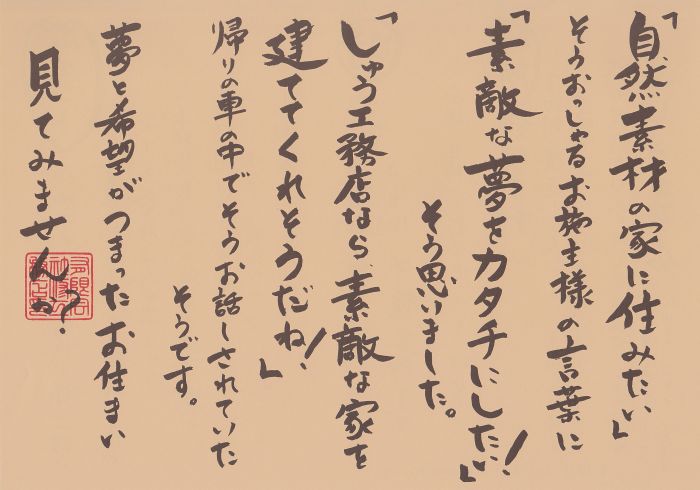 「自然素材の家に住みたい」
そうおっしゃるお施主様の言葉に
「素敵な夢をカタチにしたい!」
そう思いました。
「しゅう工務店なら素敵な家を
建ててくれそうだね!」
帰りの車の中でそうお話しされていた
そうです。
夢と希望がつまったお住まい
見てみませんか?